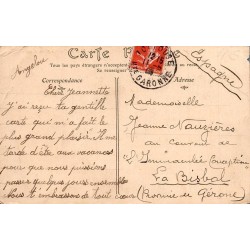 Carte Postale
Tous les pays étrangers n'acceptent
Se renseigner
Espagne
Angelou
Correspondance
Adresse
Chère Jeannette
J'ai reçu ta gentille
carte qui m'a fait le
plus grand plaisir. Il me
tarde d'être aux vacances
pour que nous puissions
passer quelques jours ensemble
embrassons de tout cœur
Mademoiselle
Jeanne Nauzières
au Couvent de
"L'Immaculée Conception"
La Bisbal
(Province de Gérone)
GARONNE